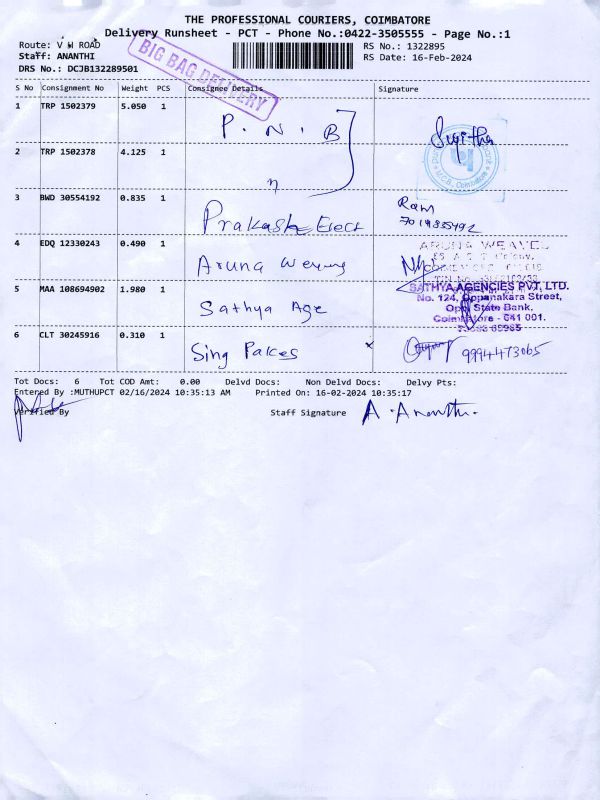 THE PROFESSIONAL COURIERS, COIMBATORE
Delivery Runsheet - PCT - Phone No.:0422-3505555 - Page No.:1
Route: V H ROAD
RS No.: 1322895
Staff: ANANTHI
RS Date: 16-Feb-2024
DRS No.: DCJB132289501
BIG BAG DELIVERY
S No Consignment No Weight PCS Consignee Details Signature
1 TRP 1502379 5.050 1 P. N. B Sujitha
2 TRP 1502378 4.125 1
3 BWD 30554192 0.835 1 Prakash Elect Ram
4 EDQ 12330243 0.490 1 Aruna
ARUNA
5 MAA 108694902 1.980 1 Sathya Age
SATHYA AGENCIES PVT. LTD.
No. 124, Oppanakara Street,
Opp State Bank,
Coimbatore - 641 001.
6 CLT 30245916 0.310 1 Sing 9994473065
Tot Docs: 6 Tot COD Amt: 0.00 Delvd Docs: Non Delvd Docs: Delvy Pts:
Entered By :MUTHUPCT 02/16/2024 10:35:13 AM Printed On: 16-02-2024 10:35:17
Verified By Staff Signature A. Ananthi.